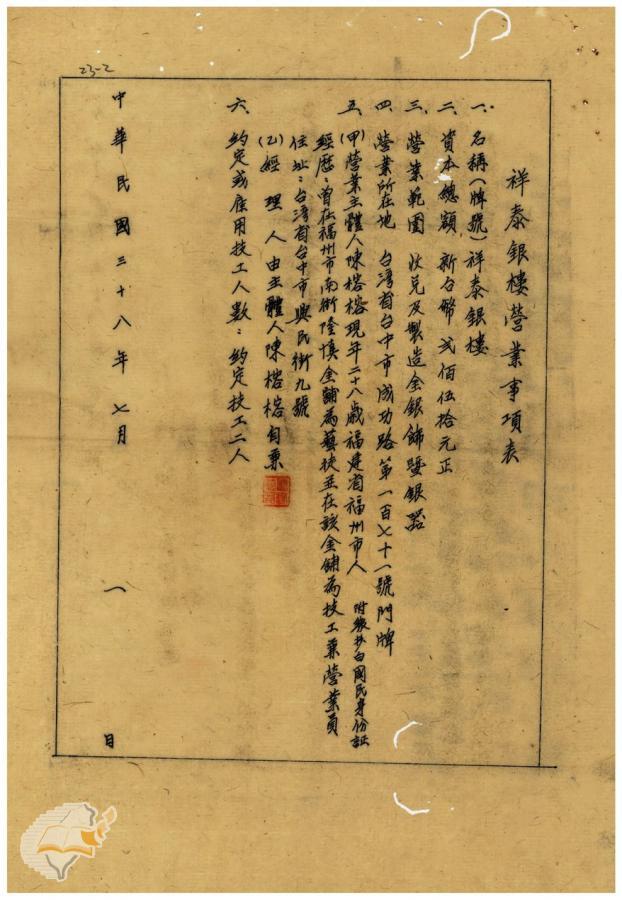 23-2
祥泰銀樓營業事項表
一、名稱(牌號)祥泰銀樓
二、資本總額 新台幣弍佰伍拾元正
三、營業範圍 收兌及製造金銀飾暨銀器
四、營業所在地 台灣省台中市成功路第一百七十一號門牌
五、(甲)營業主體人陳榕榕現年二十八歲福建省福州市人 附繳抄白國民身份証
經歷:曾在福州市南街隆慎金舖為藝徒並在該金舖為技工兼營業員
住址:台灣省台中市興民街九號
(乙)經理人由主體人陳榕榕自兼
六、約定或雇用技工人數:約定技工二人
中華民國三十八年七月 日